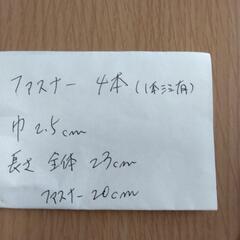 ファスナー 4本(1本注有)
巾 2.5cm
長さ 全体 23cm
ファスナー20cm